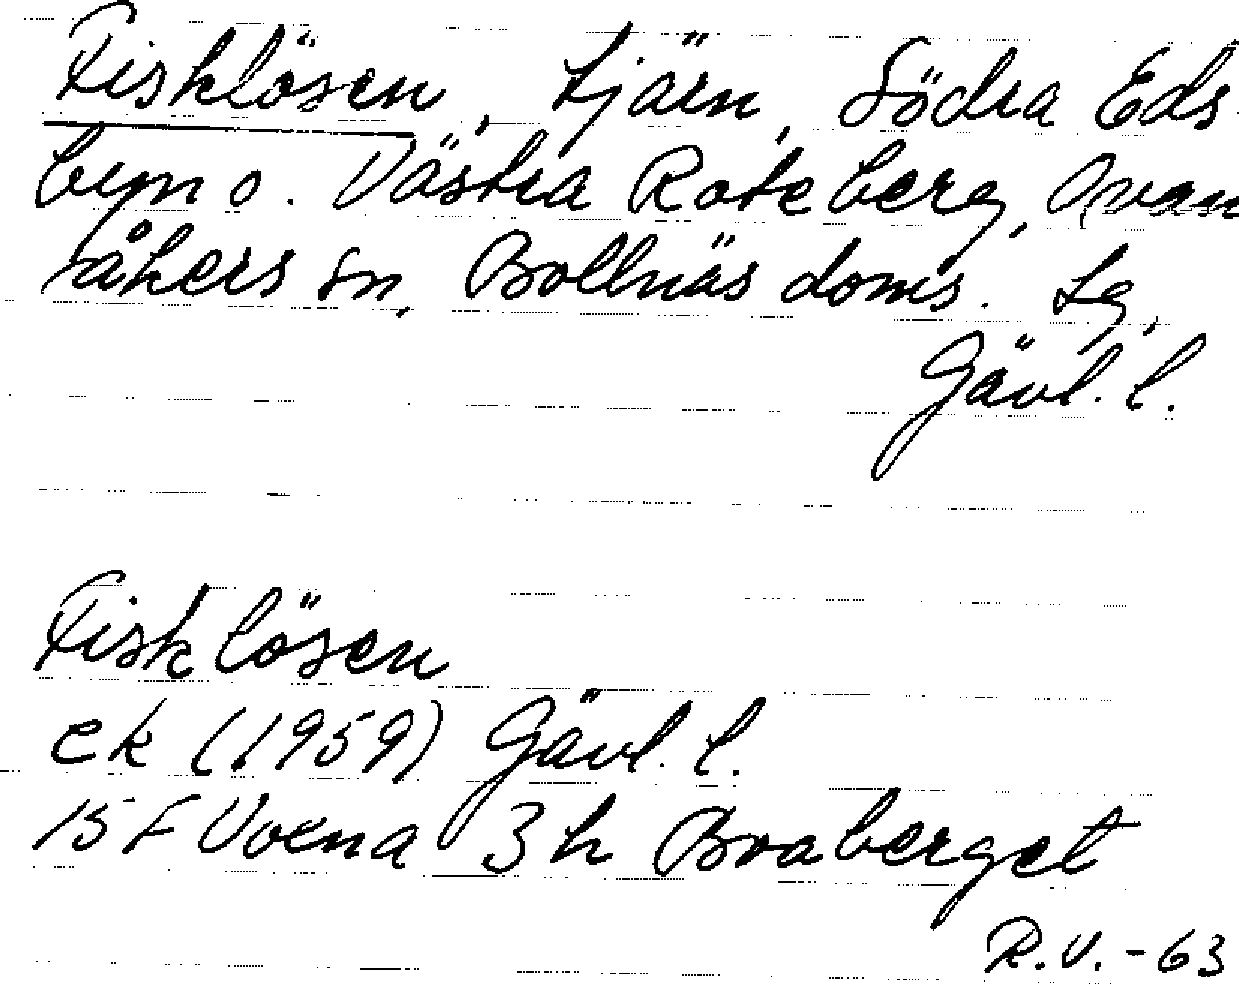 Fisklösen, tjärn, Södra Eds-
byn o. Västra Roteberg, Ovan-
åkers sn, Bollnäs doms. tg,
Gävl. l.
Fisklösen
ek (1959) Gävl. l.
15 F Voxna 3 h Broaberget
R.V. -63